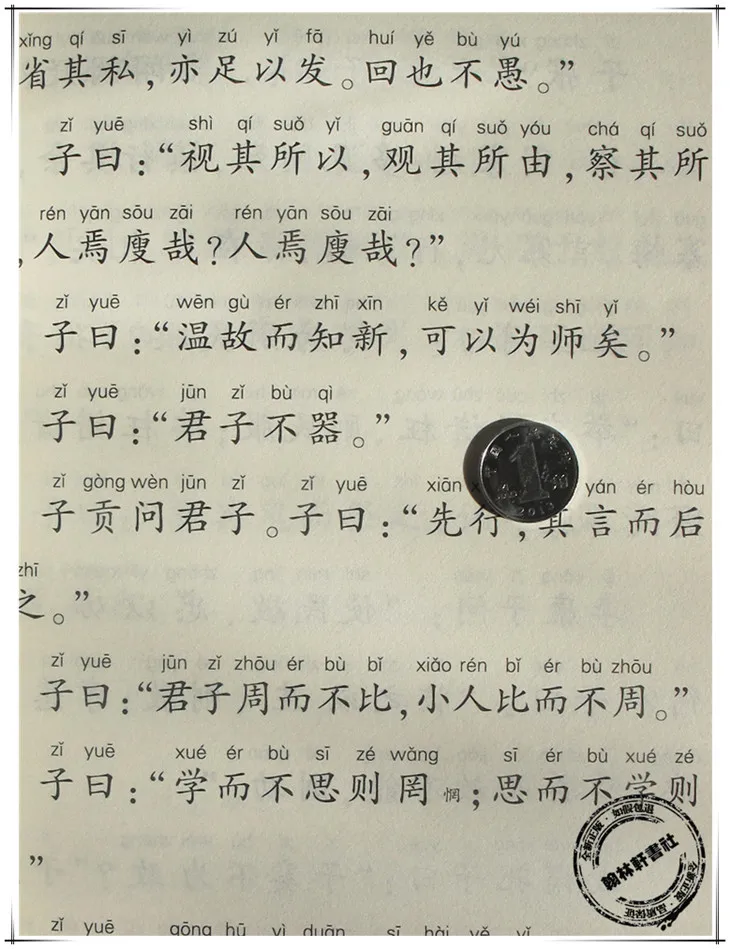 xǐng qí sī yì zú yǐ fā huí yě bù yú
省其私，亦足以发。回也不愚。”
zǐ yuē shì qí suǒ yǐ guān qí suǒ yóu chá qí suǒ
子曰：“视其所以，观其所由，察其所
rén yān sōu zāi rén yān sōu zāi
，人焉廋哉？人焉廋哉？”
zǐ yuē wēn gù ér zhī xīn kě yǐ wéi shī yǐ
子曰：“温故而知新，可以为师矣。”
zǐ yuē jūn zǐ bù qì
子曰：“君子不器。”
zǐ gòng wèn jūn zǐ zǐ yuē xiān yán ér hòu
子贡问君子。子曰：“先行，其言而后
zhī
之。”
zǐ yuē jūn zǐ zhōu ér bù bǐ xiǎo rén bǐ ér bù zhōu
子曰：“君子周而不比，小人比而不周。”
zǐ yuē xué ér bù sī zé wǎng sī ér bù xué zé
子曰：“学而不思则罔惘；思而不学则
”
zǐ yuē gōng hū yì duān sī hài yě yǐ
全新正版·如假包退
翰林軒書社
全新正版·品质保证
1
2017